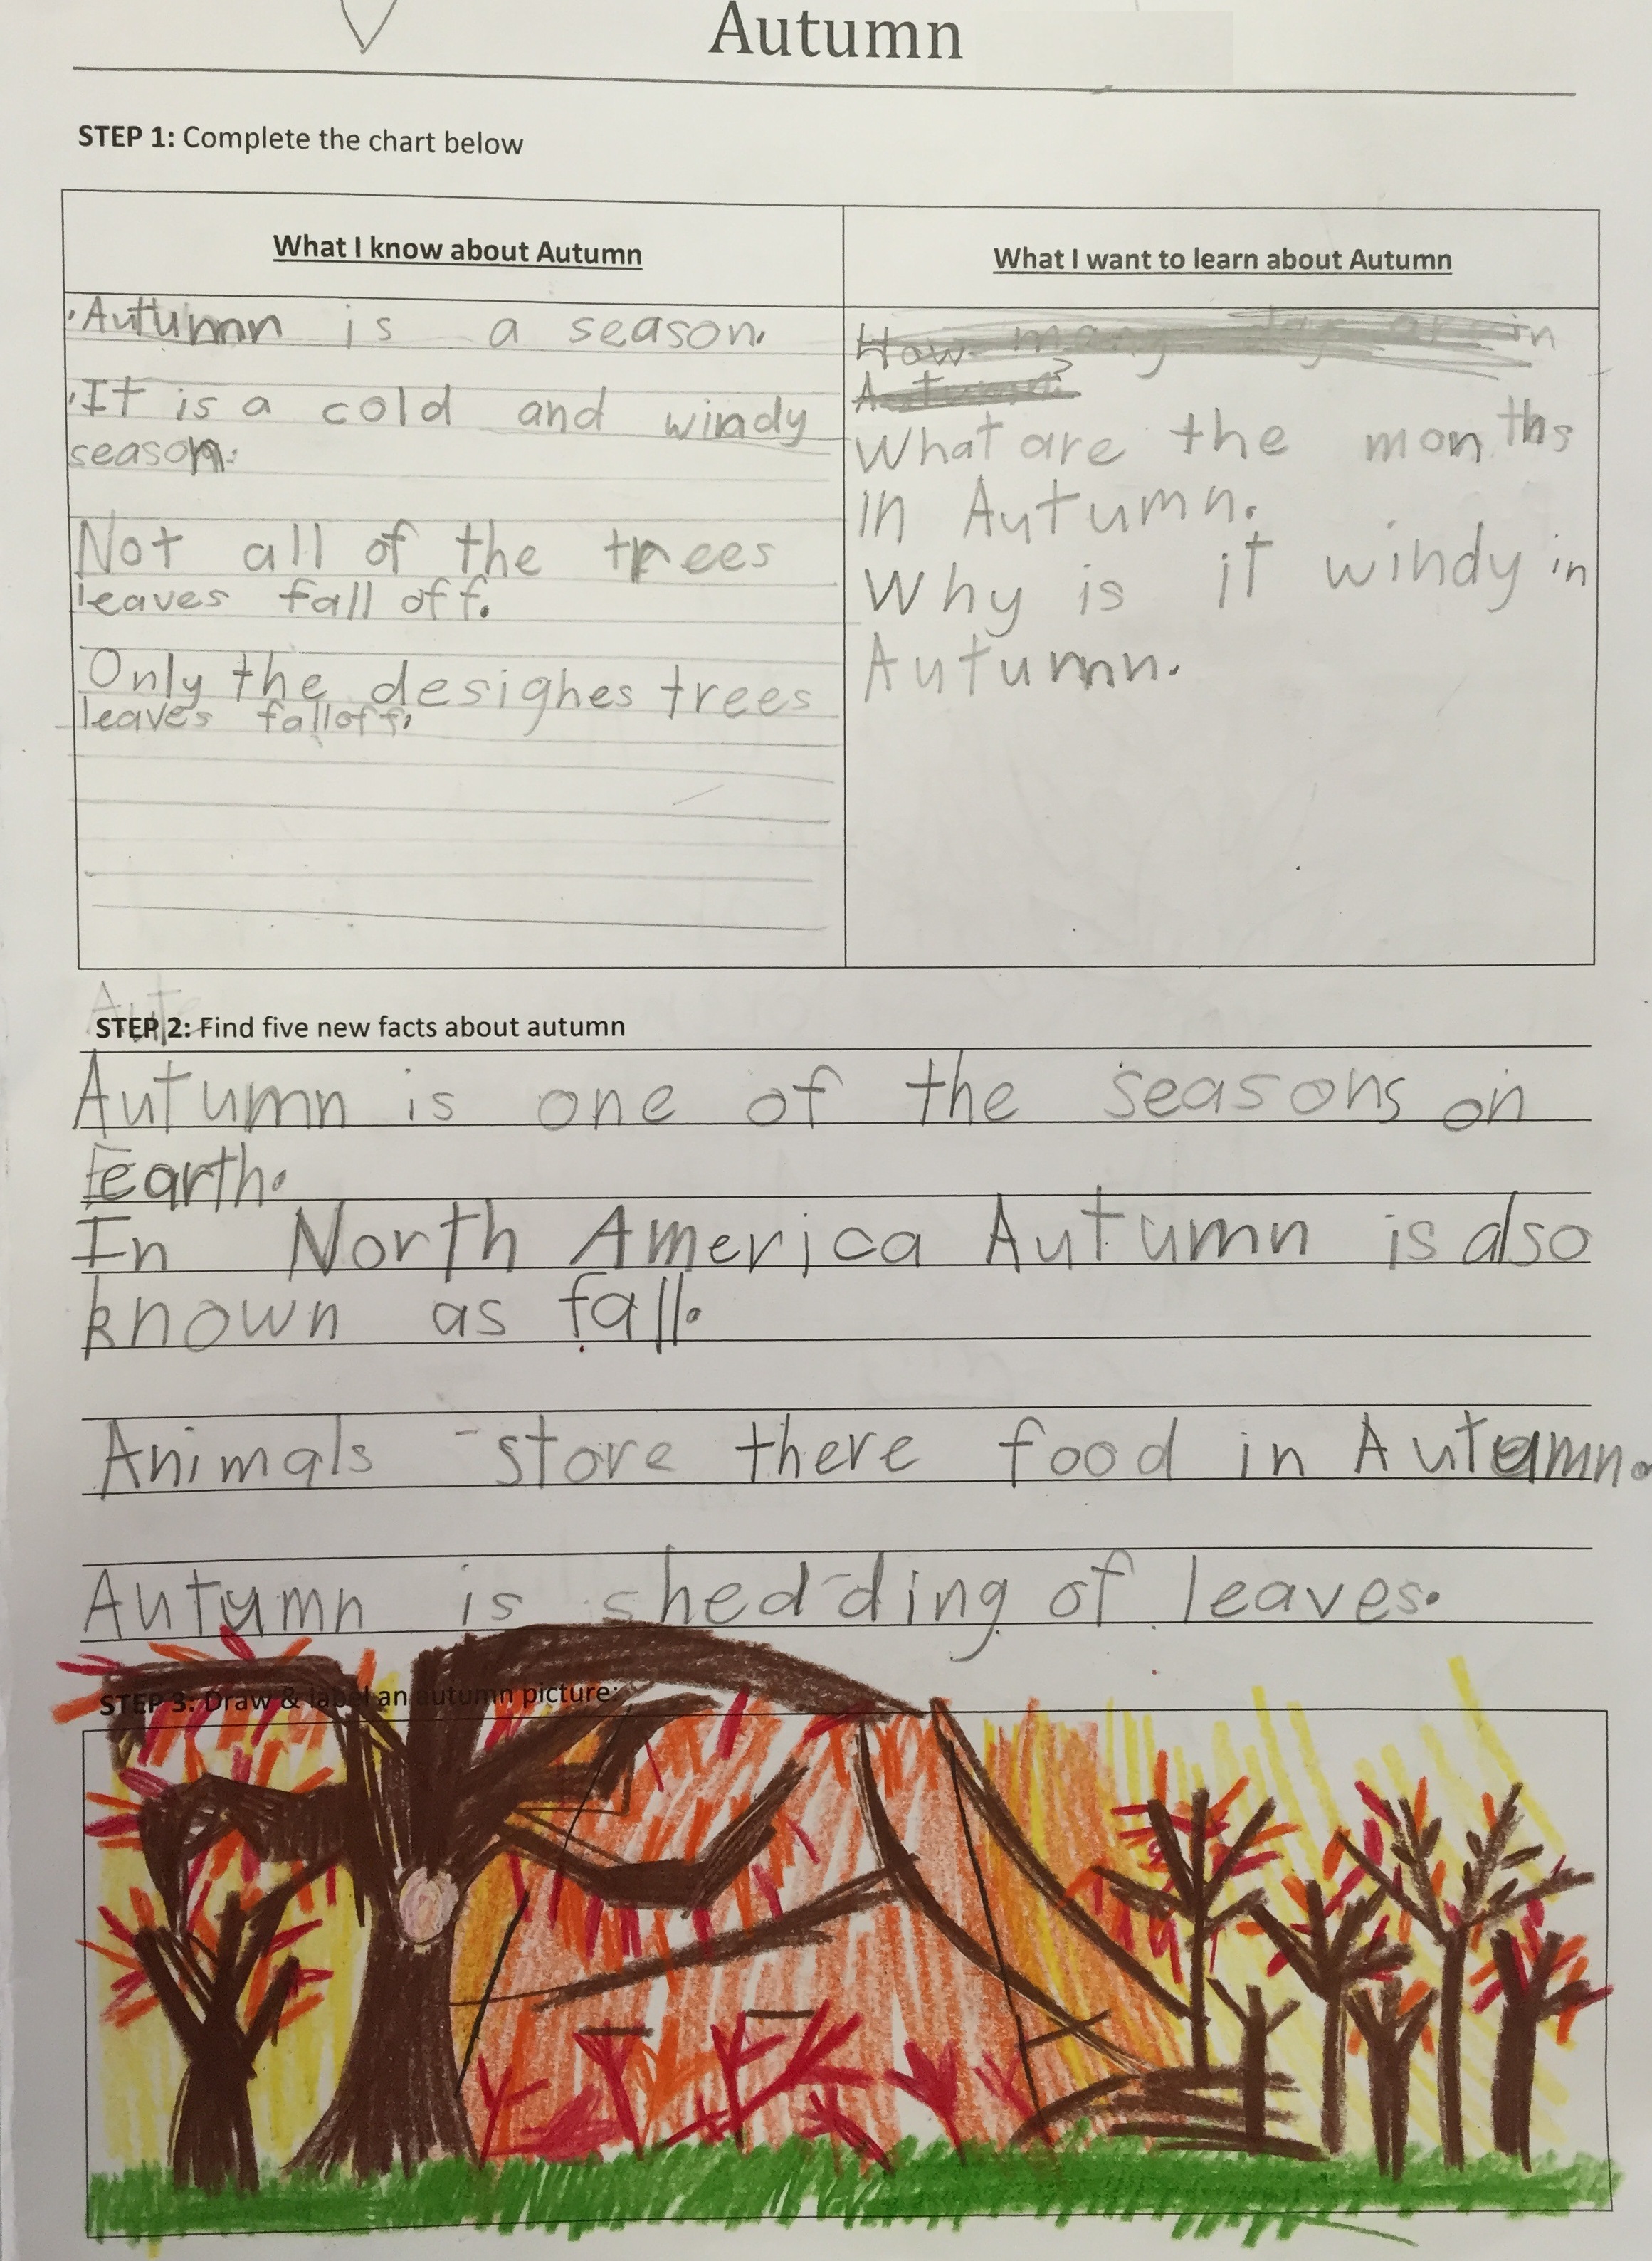 Autumn
STEP 1: Complete the chart below
What I know about Autumn
·Autumn is a season.
·It is a cold and windy
season.
Not all of the trees
leaves fall off.
Only the desighes trees
leaves fall off.
What I want to learn about Autumn
How many days are in
Autumn?
What are the months
in Autumn.
Why is it windy in
Autumn.
STEP 2: Find five new facts about autumn
Autumn is one of the seasons on
Earth.
In North America Autumn is also
known as fall.
Animals store there food in Autumn.
Autumn is shedding of leaves.
STEP 3: Draw & label an autumn picture: